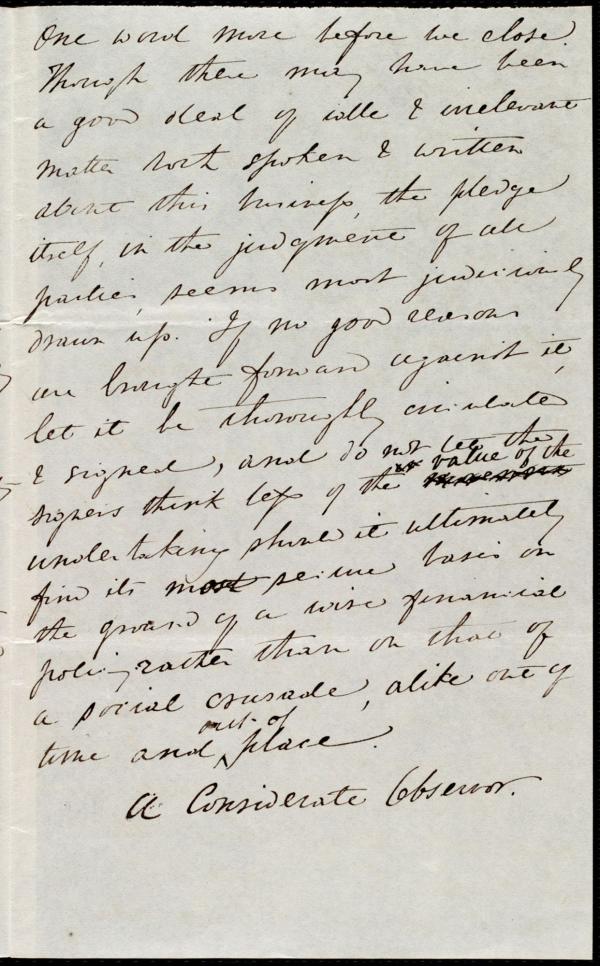 One word more before we close.
Though there may have been
a good deal of idle & irrelevant
matter both spoken & written
about this business, the pledge
itself, in the judgment of all
parties, seems most judiciously
drawn up. If no good reasons
are brought forward against it,
let it be thoroughly circulated
& signed, and do not let the
signers think less of the value of the
undertaking should it ultimately
find its most secure basis on
the ground of a wise financial
policy rather than on that of
a social crusade, alike out of
time and out of place.
A Considerate Observor.